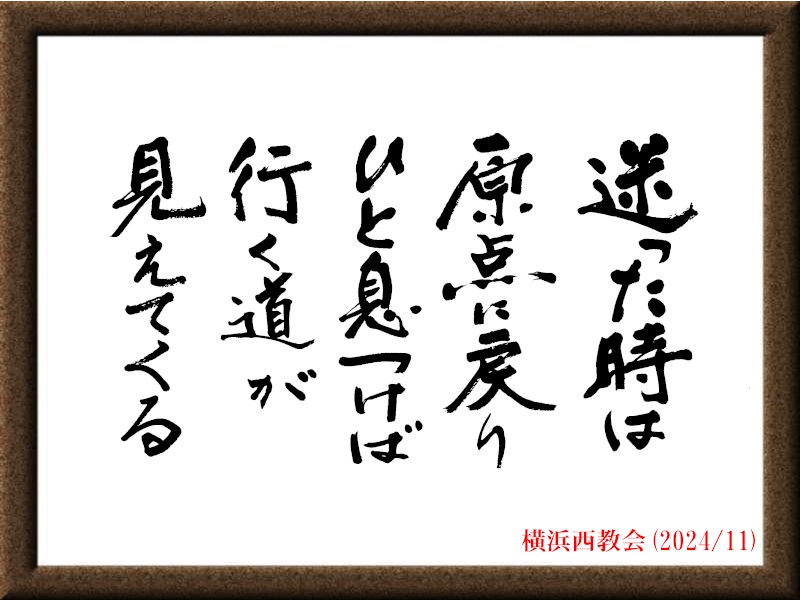 迷った時は
原点に戻り
ひと息つけば
行く道が
見えてくる
横浜西教会(2024/11)